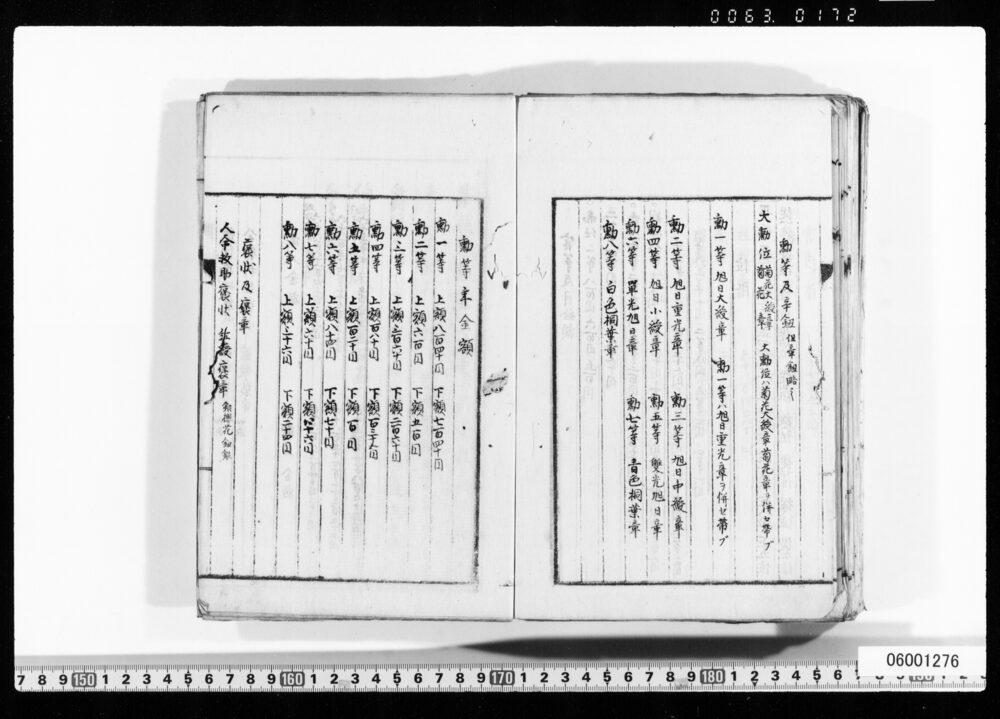 0063. 0172
勲等及章紐 但章紐略之
大勲位 菊花大綬章 菊花章 大勲位ハ菊花大綬章菊花章ヲ併セ帯ブ
勲一等 旭日大綬章 勲一等ハ旭日重光章ヲ併セ帯ブ
勲二等 旭日重光章 勲三等 旭日中綬章
勲四等 旭日小綬章 勲五等 雙光旭日章
勲六等 單光旭日章 勲七等 青色桐葉章
勲八等 白色桐葉章
勲等年金額
勲一等 上額八百四十円 下額七百四十円
勲二等 上額六百円 下額五百円
勲三等 上額三百六十円 下額二百六十円
勲四等 上額百八十円 下額百三十五円
勲五等 上額百二十円 下額百円
勲六等 上額八十四円 下額七十円
勲七等 上額六十円 下額五十六円
勲八等 上額三十六円 下額二十四円
褒状及褒章
人命救助褒状 紅綬褒章
06001276
7 8 9 150 1 2 3 4 5 6 7 8 9 160 1 2 3 4 5 6 7 8 9 170 1 2 3 4 5 6 7 8 9 180 1 2 3 4 5 6